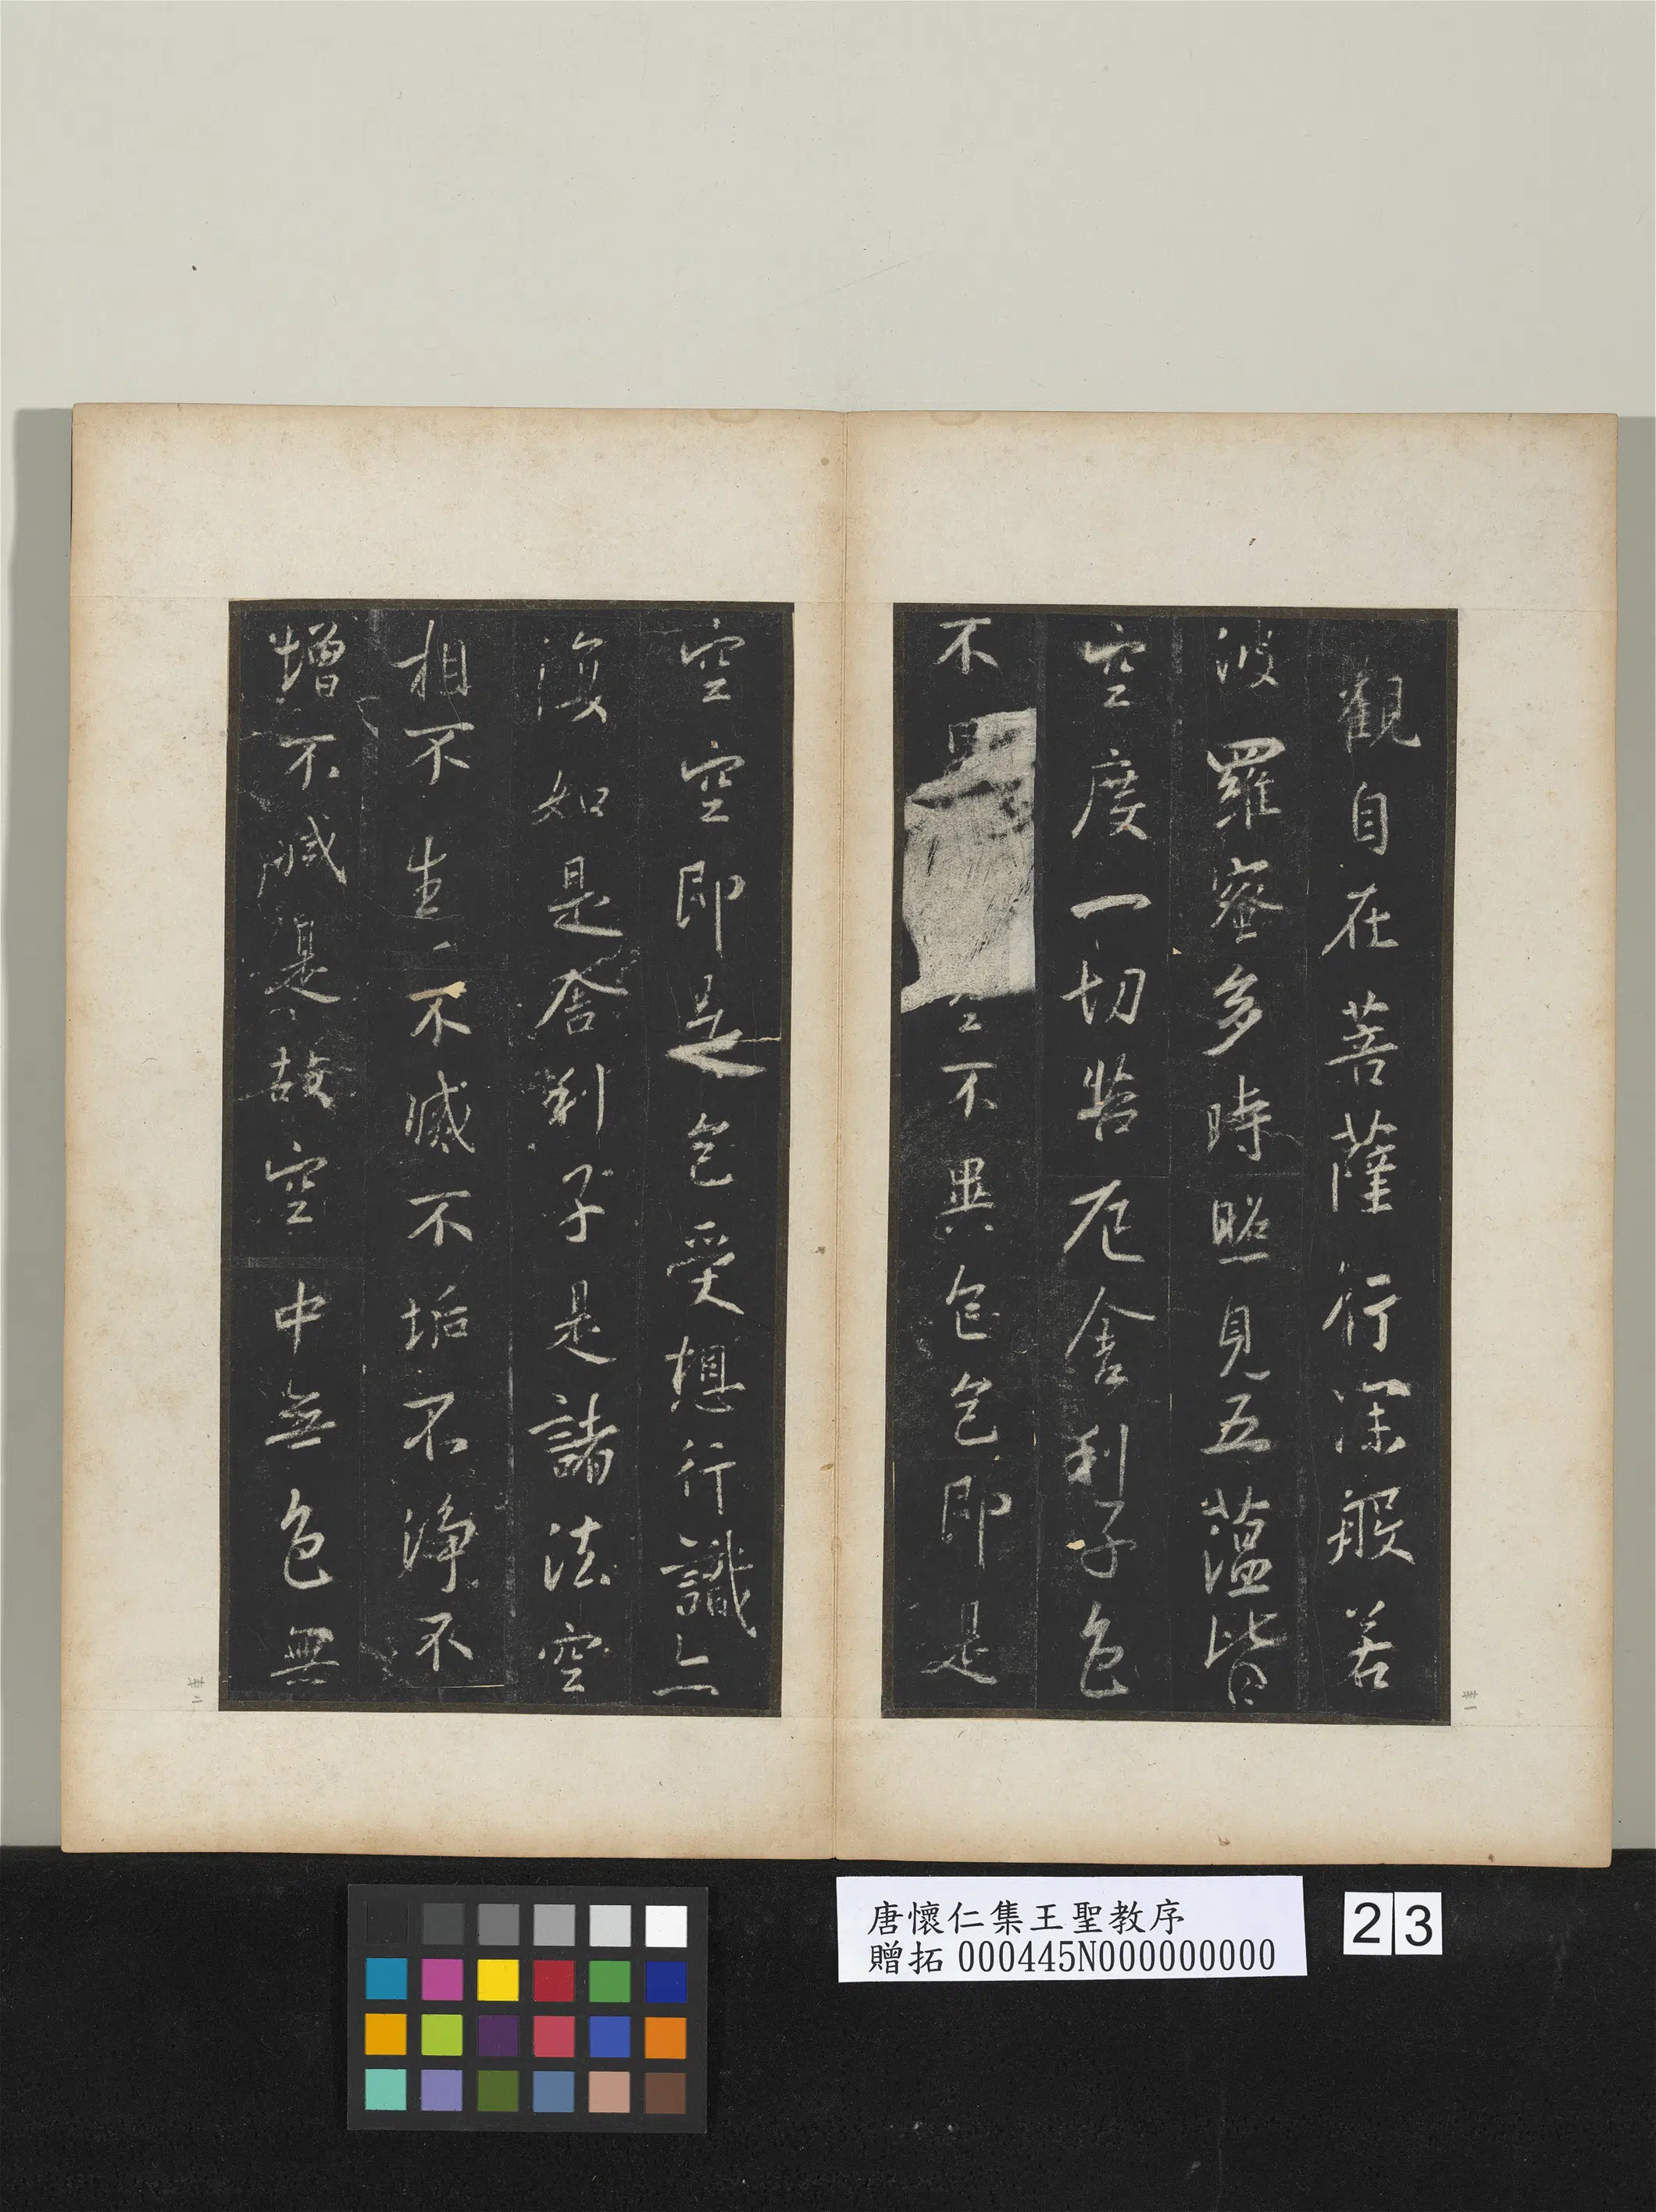 觀自在菩薩行深般若
波羅蜜多時照見五蘊皆
空度一切苦厄舍利子色
不異空不異色色即是
空空即是色受想行識亦
復如是舍利子是諸法空
相不生不滅不垢不淨不
增不減是故空中無色無
唐懷仁集王聖教序
贈拓 000445N000000000
23